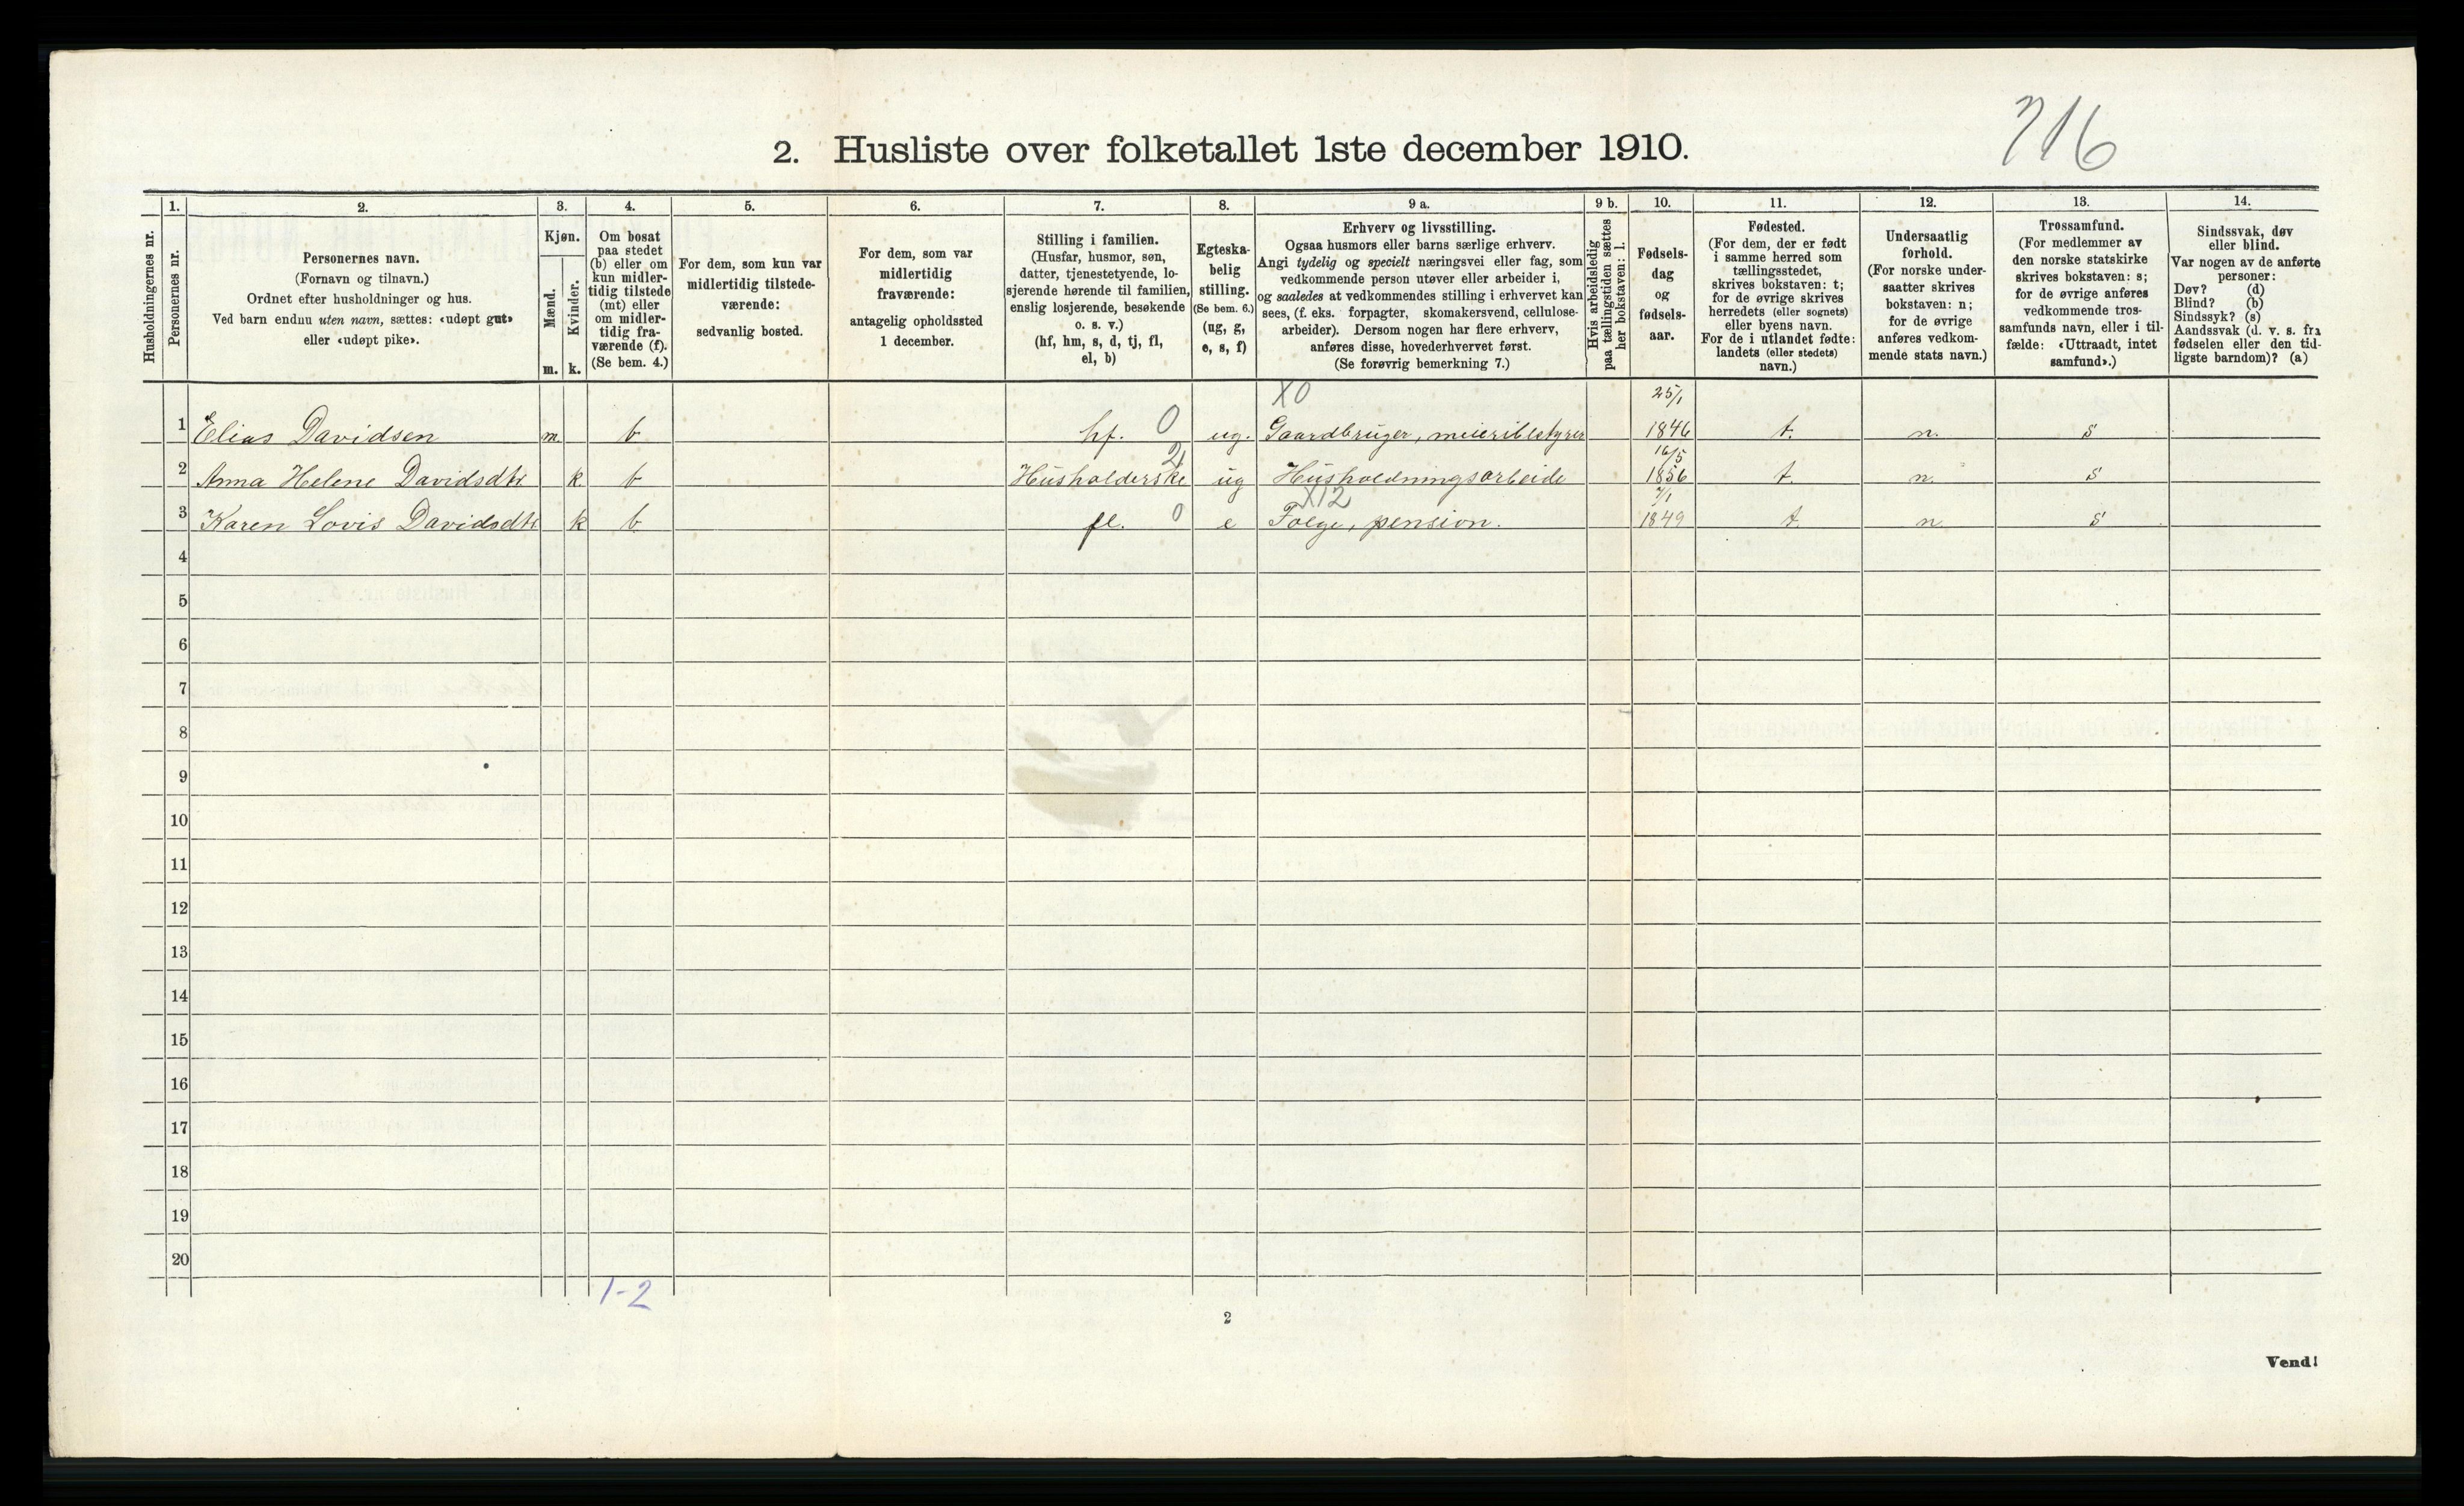 716
2. Husliste over folketallet 1ste december 1910.
Husholdningernes nr.
1.
Personernes nr.
2.
Personernes navn.
(Fornavn og tilnavn.)
Ordnet efter husholdninger og hus.
Ved barn endnu uten navn, sættes: «udøpt gut»
eller «udøpt pike».
3.
Kjøn.
Mænd.
Kvinder.
m. k.
4.
Om bosat
paa stedet
(b) eller om
kun midler-
tidig tilstede
(mt) eller
om midler-
tidig fra-
værende (f).
(Se bem. 4.)
5.
For dem, som kun var
midlertidig tilstede-
værende:
sedvanlig bosted.
6.
For dem, som var
midlertidig
fraværende:
antagelig opholdssted
1 december.
7.
Stilling i familien.
(Husfar, husmor, søn,
datter, tjenestetyende, lo-
sjerende hørende til familien,
enslig losjerende, besøkende
o. s. v.)
(hf, hm, s, d, tj, fl,
el, b)
8.
Egteska-
belig
stilling.
(Se bem. 6.)
(ug, g,
e, s, f)
9 a.
Erhverv og livsstilling.
Ogsaa husmors eller barns særlige erhverv.
Angi tydelig og specielt næringsvei eller fag, som
vedkommende person utøver eller arbeider i,
og saaledes at vedkommendes stilling i erhvervet kan
sees, (f. eks. forpagter, skomakersvend, cellulose-
arbeider). Dersom nogen har flere erhverv,
anføres disse, hovederhvervet først.
(Se forøvrig bemerkning 7.)
9 b.
Hvis arbeidsledig
paa tællingstiden sættes
her bokstaven: l.
10.
Fødsels-
dag
og
fødsels-
aar.
11.
Fødested.
(For dem, der er født
i samme herred som
tællingsstedet,
skrives bokstaven: t;
for de øvrige skrives
herredets (eller sognets)
eller byens navn.
For de i utlandet fødte:
landets (eller stedets)
navn.)
12.
Undersaatlig
forhold.
(For norske under-
saatter skrives
bokstaven: n;
for de øvrige
anføres vedkom-
mende stats navn.)
13.
Trossamfund.
(For medlemmer av
den norske statskirke
skrives bokstaven: s;
for de øvrige anføres
vedkommende tros-
samfunds navn, eller i til-
fælde: «Uttraadt, intet
samfund».)
14.
Sindssvak, døv
eller blind.
Var nogen av de anførte
personer:
Døv? (d)
Blind? (b)
Sindssyk? (s)
Aandssvak (d. v. s. fra
fødselen eller den tid-
ligste barndom)? (a)
X0 25/1
1 Elias Davidsen m. b hf. 0 ug. Gaardbruger, meieribestyrer 1846 t. n. s
2 16/5
2 Anna Helene Davidsdtr k b Husholderske ug Husholdningsarbeide 1856 t. n. s
X12 7/1
3 Karen Lovis Davidsdtr k b fl. 0 e Følge, pension. 1849 t. n. s
4
5
6
7
8
9
10
11
12
13
14
15
16
17
18
19
20
1-2
2
Vend!